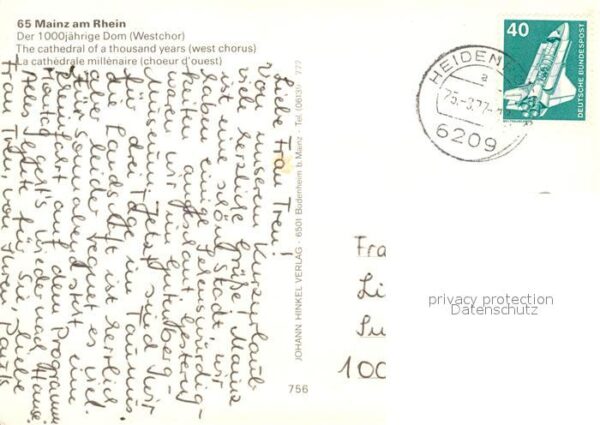 65 Mainz am Rhein
Der 1000jährige Dom (Westchor)
The cathedral of a thousand years (west chorus)
La cathédrale millénaire (choeur d'ouest)
40
DEUTSCHE BUNDESPOST
HEIDEN
a
6209
Liebe Frau Treu!
Von unserem Kurzurlaub
viele herzliche Grüße! Mainz
ist eine schöne Stadt, wir
haben einige Sehenswürdig-
keiten angeschaut, gestern
waren wir im Gutenberg-
museum. Jetzt sind wir
drei Tag im Taunus
die Landschaft ist herrlich
aber leider regnet es viel.
Für morgen steht eine
Rheinfahrt auf dem Programm
Montag geht's wieder nach Hause.
Alles Gute für Sie, liebe
Frau Treu, von Ihren
JOHANN HINKEL VERLAG - 6501 Budenheim b. Mainz - Tel. (06139) 777
756
Fra
Li
100
privacy protection
Datenschutz